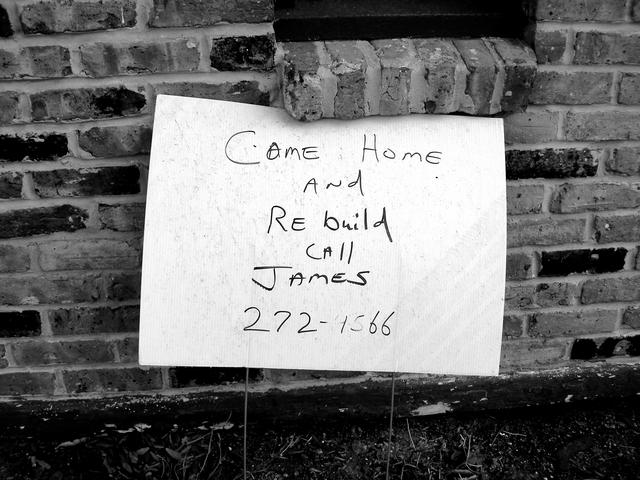 Come Home
And
REbuild
CAll
JAMES
272-4566